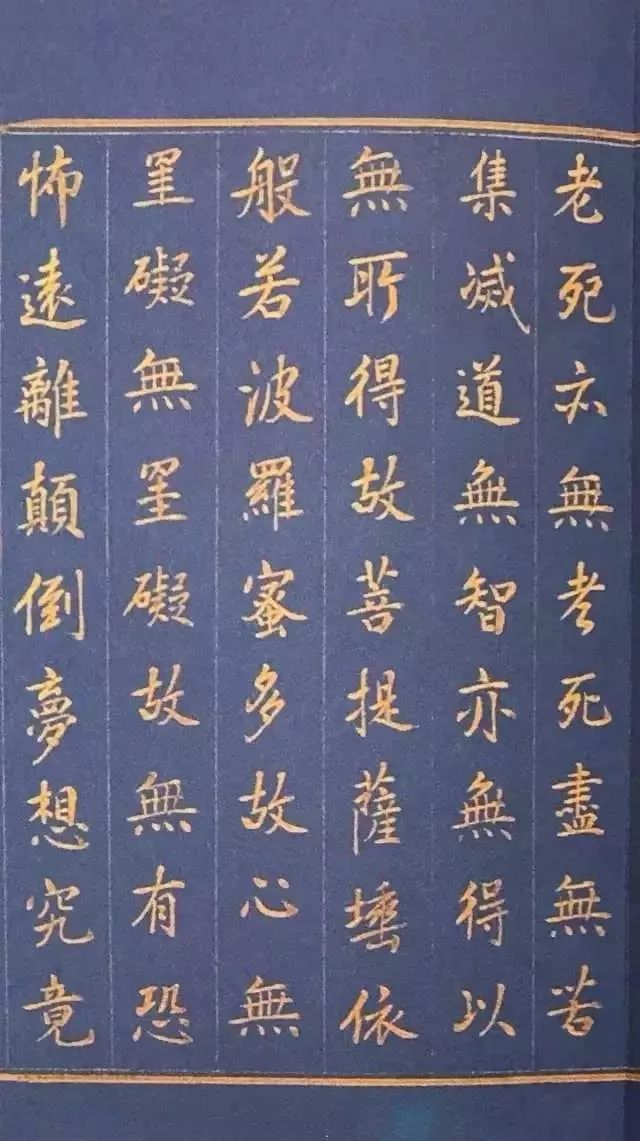 老死亦無老死盡無苦
集滅道無智亦無得以
無所得故菩提薩埵依
般若波羅蜜多故心無
罣礙無罣礙故無有恐
怖遠離顛倒夢想究竟